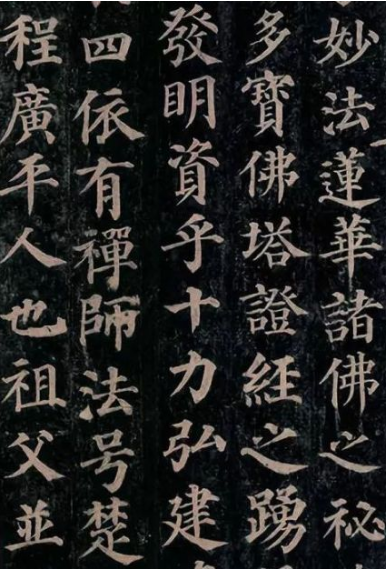 妙法蓮華諸佛之祕
多寶佛塔證經之踴
發明資乎十力弘建
四依有禪師法号楚
程廣平人也祖父並